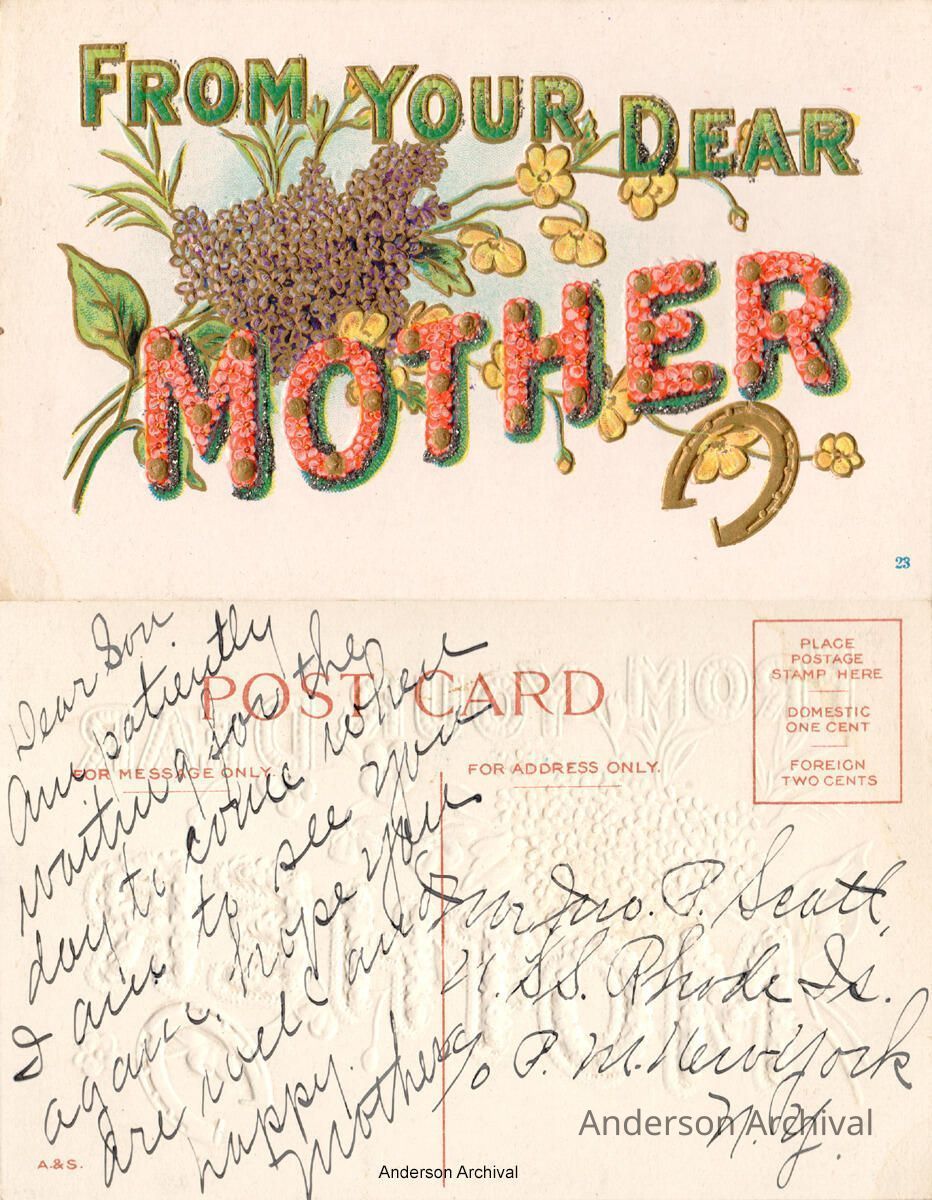 FROM YOUR DEAR
MOTHER
23
Dear Son
Am patiently
waiting for the
day to come when
I am to see you
again. hope you
are well and
happy.
Mother
POST CARD
FOR MESSAGE ONLY.
FOR ADDRESS ONLY.
PLACE
POSTAGE
STAMP HERE
DOMESTIC
ONE CENT
FOREIGN
TWO CENTS
Mr Jno. P. Scott,
U.S.S. Rhode Is.
c/o P. M. New York
N.Y.
A.& S.
Anderson Archival
Anderson Archival